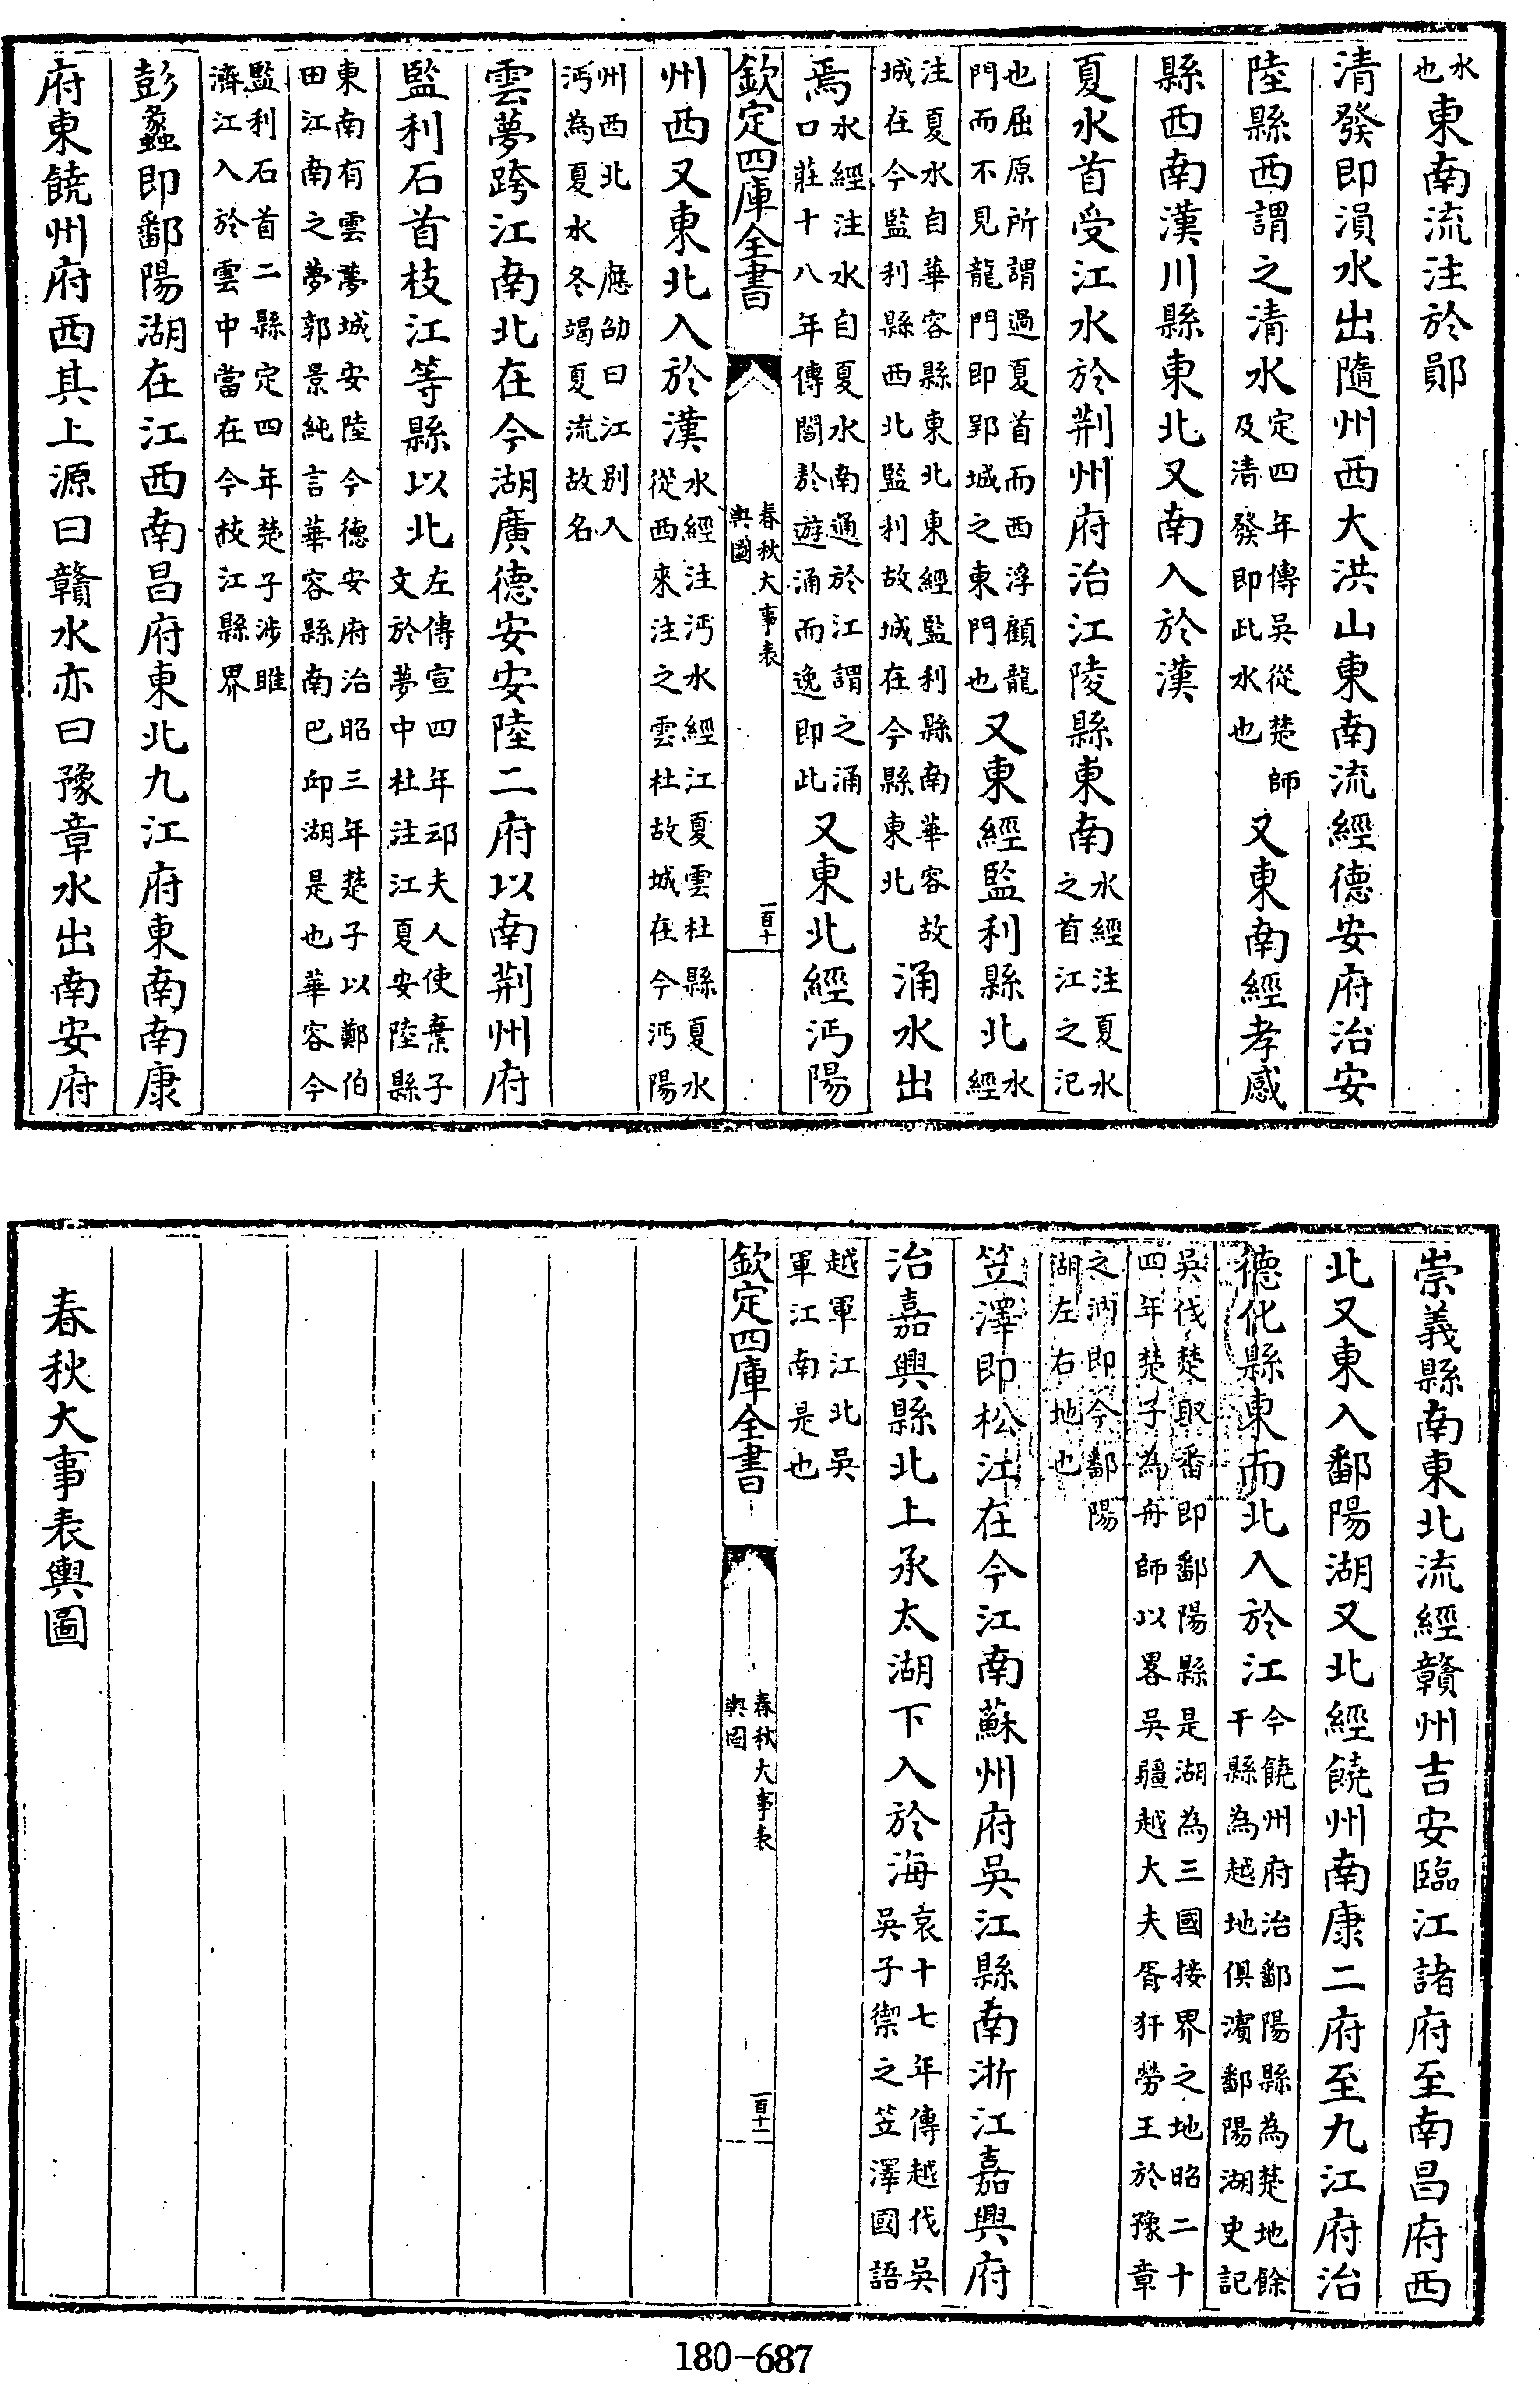 水也東南流注於鄖
清發即溳水出隨州西大洪山東南流經德安府治安
陸縣西謂之清水定四年傳吳從楚師及清發即此水也又東南經孝感
縣西南漢川縣東北又南入於漢
夏水首受江水於荆州府治江陵縣東南水經注夏水之首江之汜
也屈原所謂過夏首而西浮顧龍門而不見龍門即郢城之東門也又東經監利縣北水經
注夏水自華容縣東北東經監利縣南華容故城在今監利縣西北監利故城在今縣東北涌水出
焉水經注水自夏水南通於江謂之涌口莊十八年傳閻敖游涌而逸即此又東北經沔陽
欽定四庫全書
春秋大事表
輿圖
一百十
州西又東北入於漢水經注沔水經江夏雲杜縣夏水從西來注之雲杜故城在今沔陽
州西北應劭曰江别入沔為夏水冬竭夏流故名
雲夢跨江南北在今湖廣德安安陸二府以南荆州府
監利石首枝江等縣以北左傳宣四年䢵夫人使棄子文於夢中杜注江夏安陸縣
東南有雲夢城安陸今德安府治昭三年楚子以鄭伯田江南之夢郭景純言華容縣南巴邱湖是也華容今
監利石首二縣定四年楚子涉睢濟江入於雲中當在今枝江縣界
彭蠡即鄱陽湖在江西南昌府東北九江府東南南康
府東饒州府西其上源曰贛水亦曰豫章水出南安府
崇義縣南東北流經贛州吉安臨江諸府至南昌府西
北又東入鄱陽湖又北經饒州南康二府至九江府治
德化縣東而北入於江今饒州府治鄱陽縣為楚地餘干縣為越地俱濱鄱陽湖史記
吳伐楚取番即鄱陽縣是湖為三國接界之地昭二十四年楚子為舟師以畧吳疆越大夫胥犴勞王於豫章
之汭即今鄱陽湖左右地也
笠澤即松江在今江南蘇州府吳江縣南浙江嘉興府
治嘉興縣北上承太湖下入於海哀十七年傳越伐吳吳子禦之笠澤國語
越軍江北吳軍江南是也
欽定四庫全書
春秋大事表
輿圖
一百十一
春秋大事表輿圖
180-687